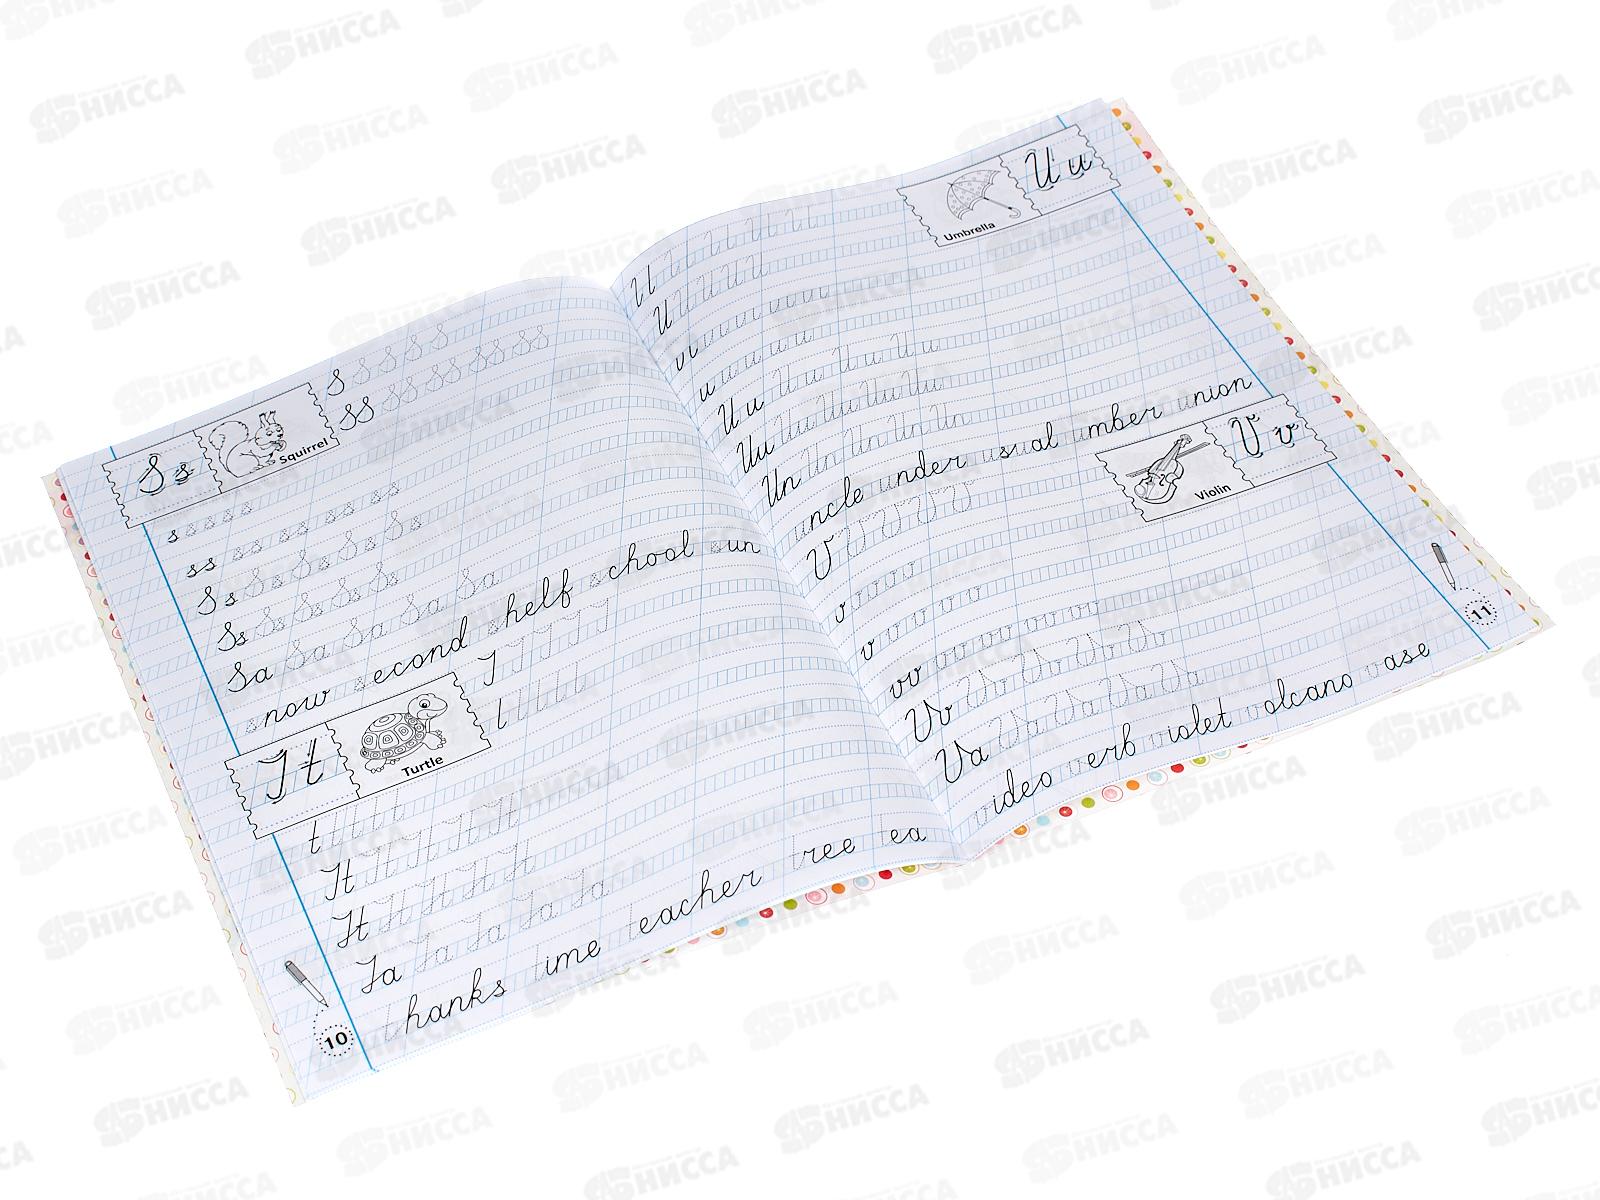 Ss
Squirrel
S S S S S S
SS SS SS SS SS SS
s s s s s s
ss ss ss ss ss
Ss Ss Ss Ss Ss
Ss Ss Ss Ss Ss
Sa Sa Sa Sa Sa
snow second shelf school sun
Tt
Turtle
T T T T T T
t t t t t
Tt Tt Tt Tt Tt
Tt Tt Tt Tt Tt
Ta Ta Ta Ta Ta
thanks time teacher tree tea
10
Uu
Umbrella
U U U U U U
u u u u u u
Uu Uu Uu Uu
Uu Uu Uu Uu
Un Un Un Un
uncle under usual umber union
Vv
Violin
V V V V V
v v v v v
v v v v v
vv vv vv vv vv
Vv Vv Vv Vv Vv
Va Va Va Va Va
video verb violet volcano vase
11
НИССА